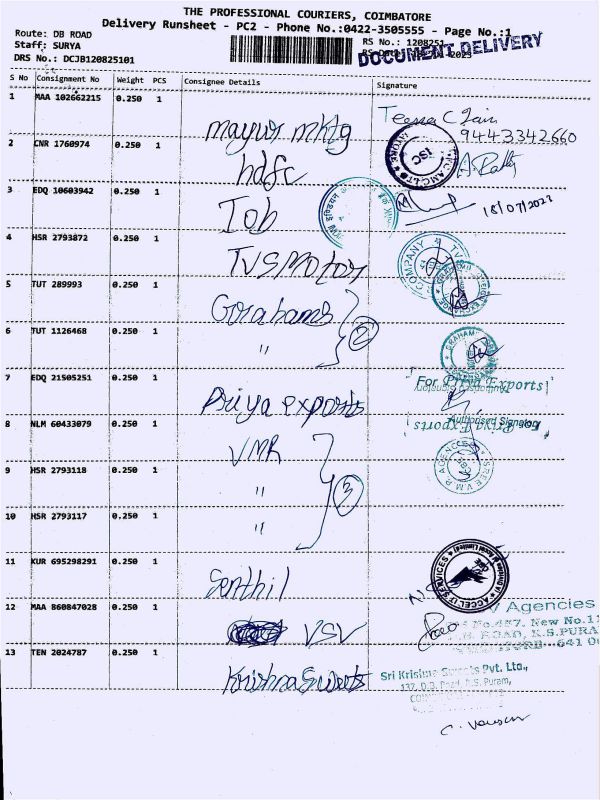 THE PROFESSIONAL COURIERS, COIMBATORE
Delivery Runsheet - PC2 - Phone No.:0422-3505555 - Page No.:1
Route: DB ROAD
Staff: SURYA
DRS No.: DCJB120825101
RS No.: 1208251
DOCUMENT DELIVERY
S No Consignment No Weight PCS Consignee Details Signature
1 MAA 102662215 0.250 1 mayur mktg
C Jain
9443342660
2 CNR 1760974 0.250 1 hdfc
3 EDQ 10603942 0.250 1 Iob
18/07/2023
4 HSR 2793872 0.250 1 TVS Motor
COMPANY
5 TUT 289993 0.250 1 Gorahams
6 TUT 1126468 0.250 1 " 2
7 EDQ 21505251 0.250 1 Priya exports
For Priya Exports
Authorised Signatory
8 NLM 60433079 0.250 1 VMR
9 HSR 2793118 0.250 1 " 3
SREE V.M.R. AGENCIES
10 HSR 2793117 0.250 1 "
11 KUR 695298291 0.250 1 Senthil
ACCEL IT SERVICES
12 MAA 860847028 0.250 1 VSV
Agencies
New No.11
ROAD, K.S.PURA
641 0
13 TEN 2024787 0.250 1 Krishna Sweets
Sri Krishna Sweets Pvt. Ltd.,
137, D.B. Road, R.S. Puram,